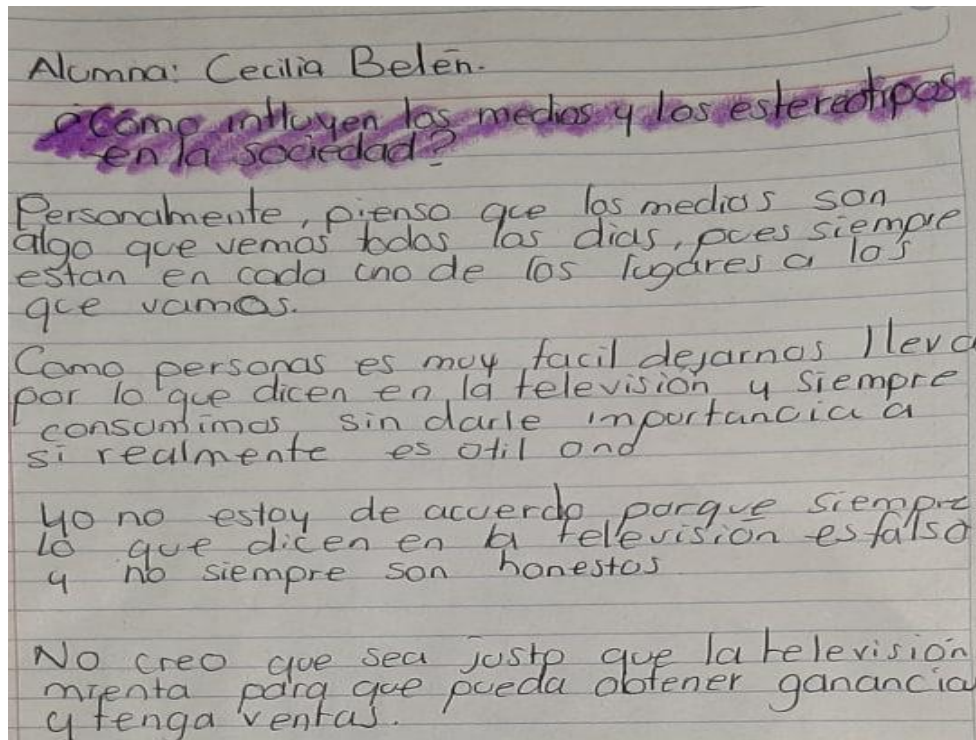 Alumna: Cecilia Belén.
¿Cómo influyen los medios y los estereotipos
en la sociedad?
Personalmente, pienso que los medios son
algo que vemos todos los dias, pues siempre
estan en cada uno de los lugares a los
que vamos.
Como personas es muy facil dejarnos lleva
por lo que dicen en la televisión y siempre
consumimos sin darle importancia a
si realmente es útil o no
yo no estoy de acuerdo porque siempre
lo que dicen en la televisión es falso
y no siempre son honestos
No creo que sea justo que la televisión
mienta para que pueda obtener ganancia
y tenga ventas.